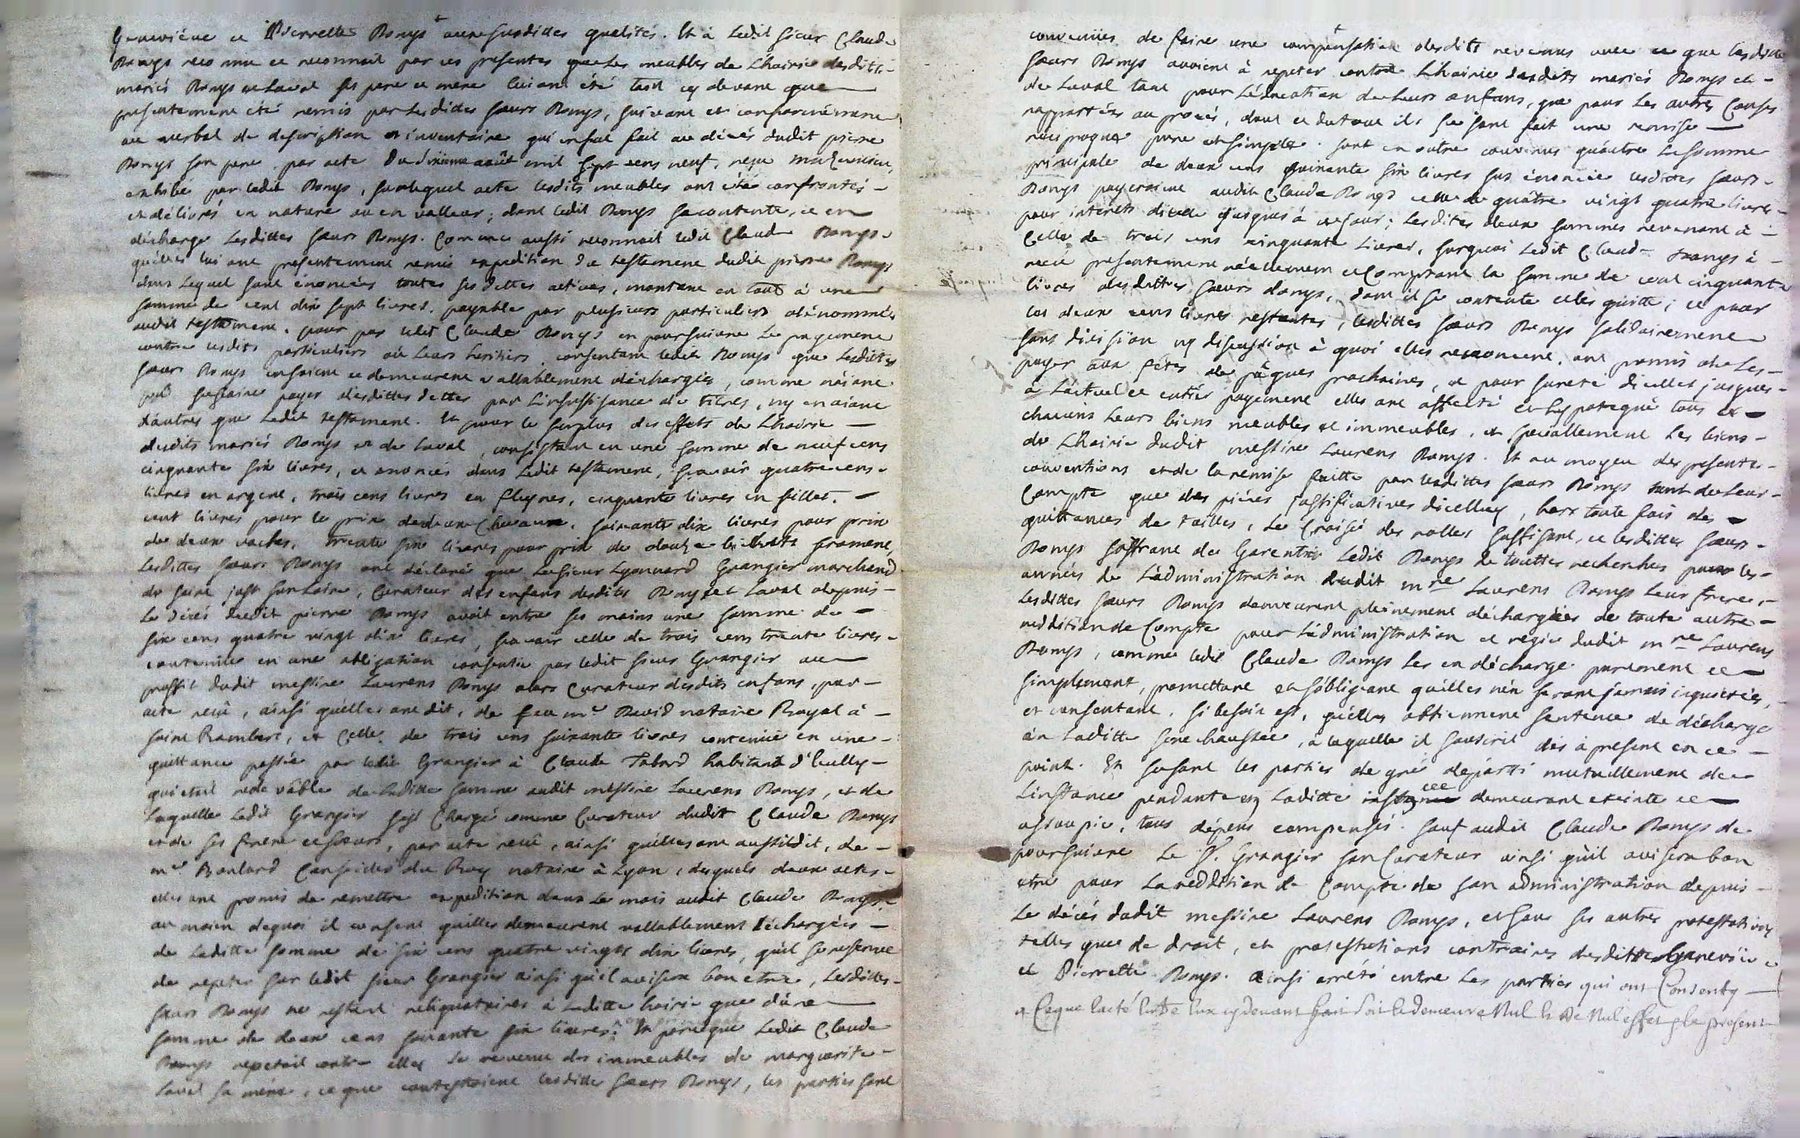 Genevieve et Pierrette Ronys auxsusdittes qualités. Et à Ledit sieur Claude
Ronys reconnu et reconnait par ces presentes que les meubles de L'hoirie desdits
mariés Ronys et Laval ses pere et mere lui ont été tant cy devant que
presentement été remis par lesdittes sœurs Ronys, suivant et conformément
au verbal de description et inventaire qui enfut fait au décés dudit pierre
Ronys son pere, par acte du dixieme août mil sept cens neuf, reçu
exhibé par ledit Ronys, surlequel acte lesdits meubles ont été confrontés
et délivrés en nature ou en valleur; dont ledit Ronys se contente, et en
décharge Lesdittes sœurs Ronys. Comme aussi reconnait ledit Claude Ronys
qu'elles lui ont presentement remis expedition du testament dudit pierre Ronys
dans Lequel sont énoncées toutes ses dettes actives, montant en tout à une
somme de cent dix sept livres, payable par plusieurs particuliers dénommés
audit testament, pour par ledit Claude Ronys en poursuivre Le payement
contre lesdits particuliers où Leurs heritiers, consentant ledit Ronys que Lesdittes
sœurs Ronys en soient et demeurent vallablement déchargées, comme n'aiant
pû se faire payer desdittes dettes par L'insuffisance de titres, ny en aiant
d'autres que Ledit testament. Et pour le surplus des effets de L'hoirie
desdits mariés Ronys et de Laval, consistant en une somme de neuf cens
cinquante six livres, et énoncés dans Ledit testament, sçavoir quatre cens
livres en argent, trois cens livres en , cinquante livres en fillet,
cent livres pour le prix de deux Chevaux, soixante dix livres pour prix
de deux vaches, trente six livres pour prix de douze bichets froment,
Lesdittes sœurs Ronys ont déclaré que Le sieur Lyonnard Grangier marchand
de saint just sur Loire, Curateur des enfans desdits Ronys et Laval depuis
Le décés dudit pierre Ronys avoit entre ses mains une somme de
six cens quatre vingt dix livres, sçavoir celle de trois cens trente livres
contenuë en une obligation consentie par ledit sieur Grangier au
proffit dudit messire Laurens Ronys alors Curateur desdits enfans, par
acte reçû, ainsi qu'elles ont dit, de feu me David notaire Royal à
saint Rambert, et Celle de trois cens soixante livres contenuë en une
quittance passée par ledit Grangier à Claude Tabard habitant d'
qui etoit redevable de laditte somme audit messire Laurens Ronys, et de
laquelle Ledit Grangier s'est Chargé comme Curateur dudit Claude Ronys
et de ses frere et sœurs, par acte reçû, ainsi qu'elles ont aussi dit, de
me Conseiller du Roy notaire à Lyon, desquels deux actes
elles ont promis de remettre expedition dans Le mois audit Claude Ronys
au moien dequoi il consent qu'elles demeurent vallablement déchargées
de Laditte somme de six cens quatre vingt dix livres, qu'il se reserve
de repeter sur Ledit sieur Grangier ainsi qu'il avisera bon etre, Lesdittes
sœurs Ronys ne restent reliquataires à Laditte hoirie que d'une
somme de deux cens soixante six livres. Et parceque Ledit Claude
Ronys repetoit contre elles Le revenu des immeubles de marguerite
Laval sa mere, ce que contestoient lesdittes sœurs Ronys, les parties sont
convenuës de faire une compensation desdits revenus avec ce que lesdittes
sœurs Ronys avoient à repeter contre L'hoirie desdits mariés Ronys et
de Laval tant pour L'éducation de Leurs enfans, que pour Les autres Causes
rapportées au procés, dont et du tout ils se sont fait une remise
reciproque pure et simple. Sont en outre convenus qu'outre La somme
principale de deux cens soixante six livres sus énoncée lesdittes sœurs
Ronys payeroient audit Claude Ronys celle de quâtre vingt quatre livres
pour interêts d'icelle jusques à ce jour; lesdites deux sommes revenant à
Celle de trois cens cinquante Livres, surquoi Ledit Claude Ronys à
reçu presentement réellement et Comptant la somme de cent cinquante
livres desdittes sœurs Ronys, dont il se contente et les quitte; et pour
les deux cens livres restantes, lesdittes sœurs Ronys solidairement
sans division ny discution à quoi elles renoncent, ont promis de Les
payer aux fêtes de pâques prochaines, et pour sureté d'icelles jusques
à L'actuel et entier payement elles ont affecté et hypotequé tous et
chacuns Leurs biens meubles et immeubles, et speciallement Les biens
de L'hoirie dudit messire Laurens Ronys. Et au moyen des presentes
conventions et de la remise faitte par lesdittes sœurs Ronys tant de Leur
Compte que des piéces justificatives d'icelluy, hors toute fois des
quittances de tailles, Le Croisé des rolles suffisant, et lesdittes sœurs
Ronys s'offrant de Garentir Ledit Ronys de touttes recherches pour les
années de L'administration dudit mre Laurens Ronys Leur frere,
Lesdittes sœurs Ronys demeurent pleinement déchargées de toute autre
reddition de Compte pour L'administration et régie dudit mre Laurens
Ronys, comme ledit Claude Ronys Les en décharge purement et
simplement, promettant et s'obligeant qu'elles n'en seront jamais inquietées,
et consentant, si besoin est, qu'elles obtiennent sentence de décharge
en Laditte senechaussée, à laquelle il souscrit dès à present en ce
point. Et se sont les parties de gré departi mutuellement de
L'instance pendante en Laditte icelle demeurant eteinte et
assoupie, tous dépens compensés. Sauf audit Claude Ronys de
poursuivre Le Sr. Grangier son Curateur ainsi qu'il avisera bon
etre pour La reddition de Compte de son administration depuis
Le décés dudit messire Laurens Ronys, et sous ses autres protestations
telles que de droit, et protestations contraires desdittes Genevieve
et Pierrette Ronys. Ainsi arrêté entre Les parties qui ont Consenty
que l'acte entre eux cydevant fait soit et demeure Nul et De Nul effet p le present